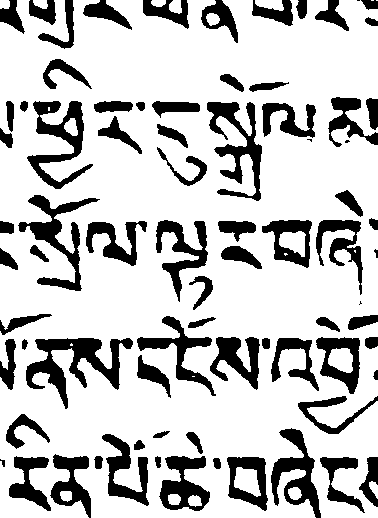 ས་ཕྱིར་དུ་སྒྲོལ་མ
སྲོལ་ལྟར་བཞེ
ནས་དངོས་འབྱོ
རིན་པོ་ཆེ་བཞེངས